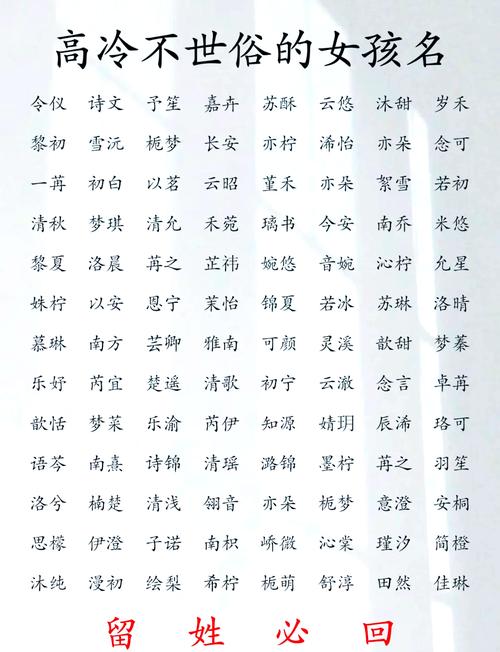 高冷不世俗的女孩名
令仪 诗文 予笙 嘉卉 苏酥 云悠 沐甜 岁禾
黎初 雪沅 栀梦 长安 亦柠 浠怡 亦朵 念可
一苒 初白 以茗 云昭 堇禾 亦朵 絮雪 若初
清秋 梦琪 清允 禾菀 璃书 今安 南乔 米悠
黎夏 洛晨 苒之 芷祎 婉悠 音婉 沁柠 允星
姝柠 以安 恩宁 茉怡 锦夏 若冰 苏琳 洛晴
慕琳 南方 芸卿 雅南 可颜 灵溪 歆甜 梦蓁
乐妤 芮宜 楚遥 清歌 初宁 云澈 念言 卓苒
歆恬 梦菜 乐渝 芮伊 知源 婧玥 辰浠 珞可
语芩 南熹 诗锦 清瑶 潞锦 墨柠 苒之 羽笙
洛兮 楠楚 清浅 翎音 亦朵 栀梦 意澄 安桐
思檬 伊澄 子诺 南枳 峤微 沁棠 瑾汐 简橙
沐纯 漫初 绘梨 希柠 栀萌 舒淳 田然 佳琳
留 姓 必 回